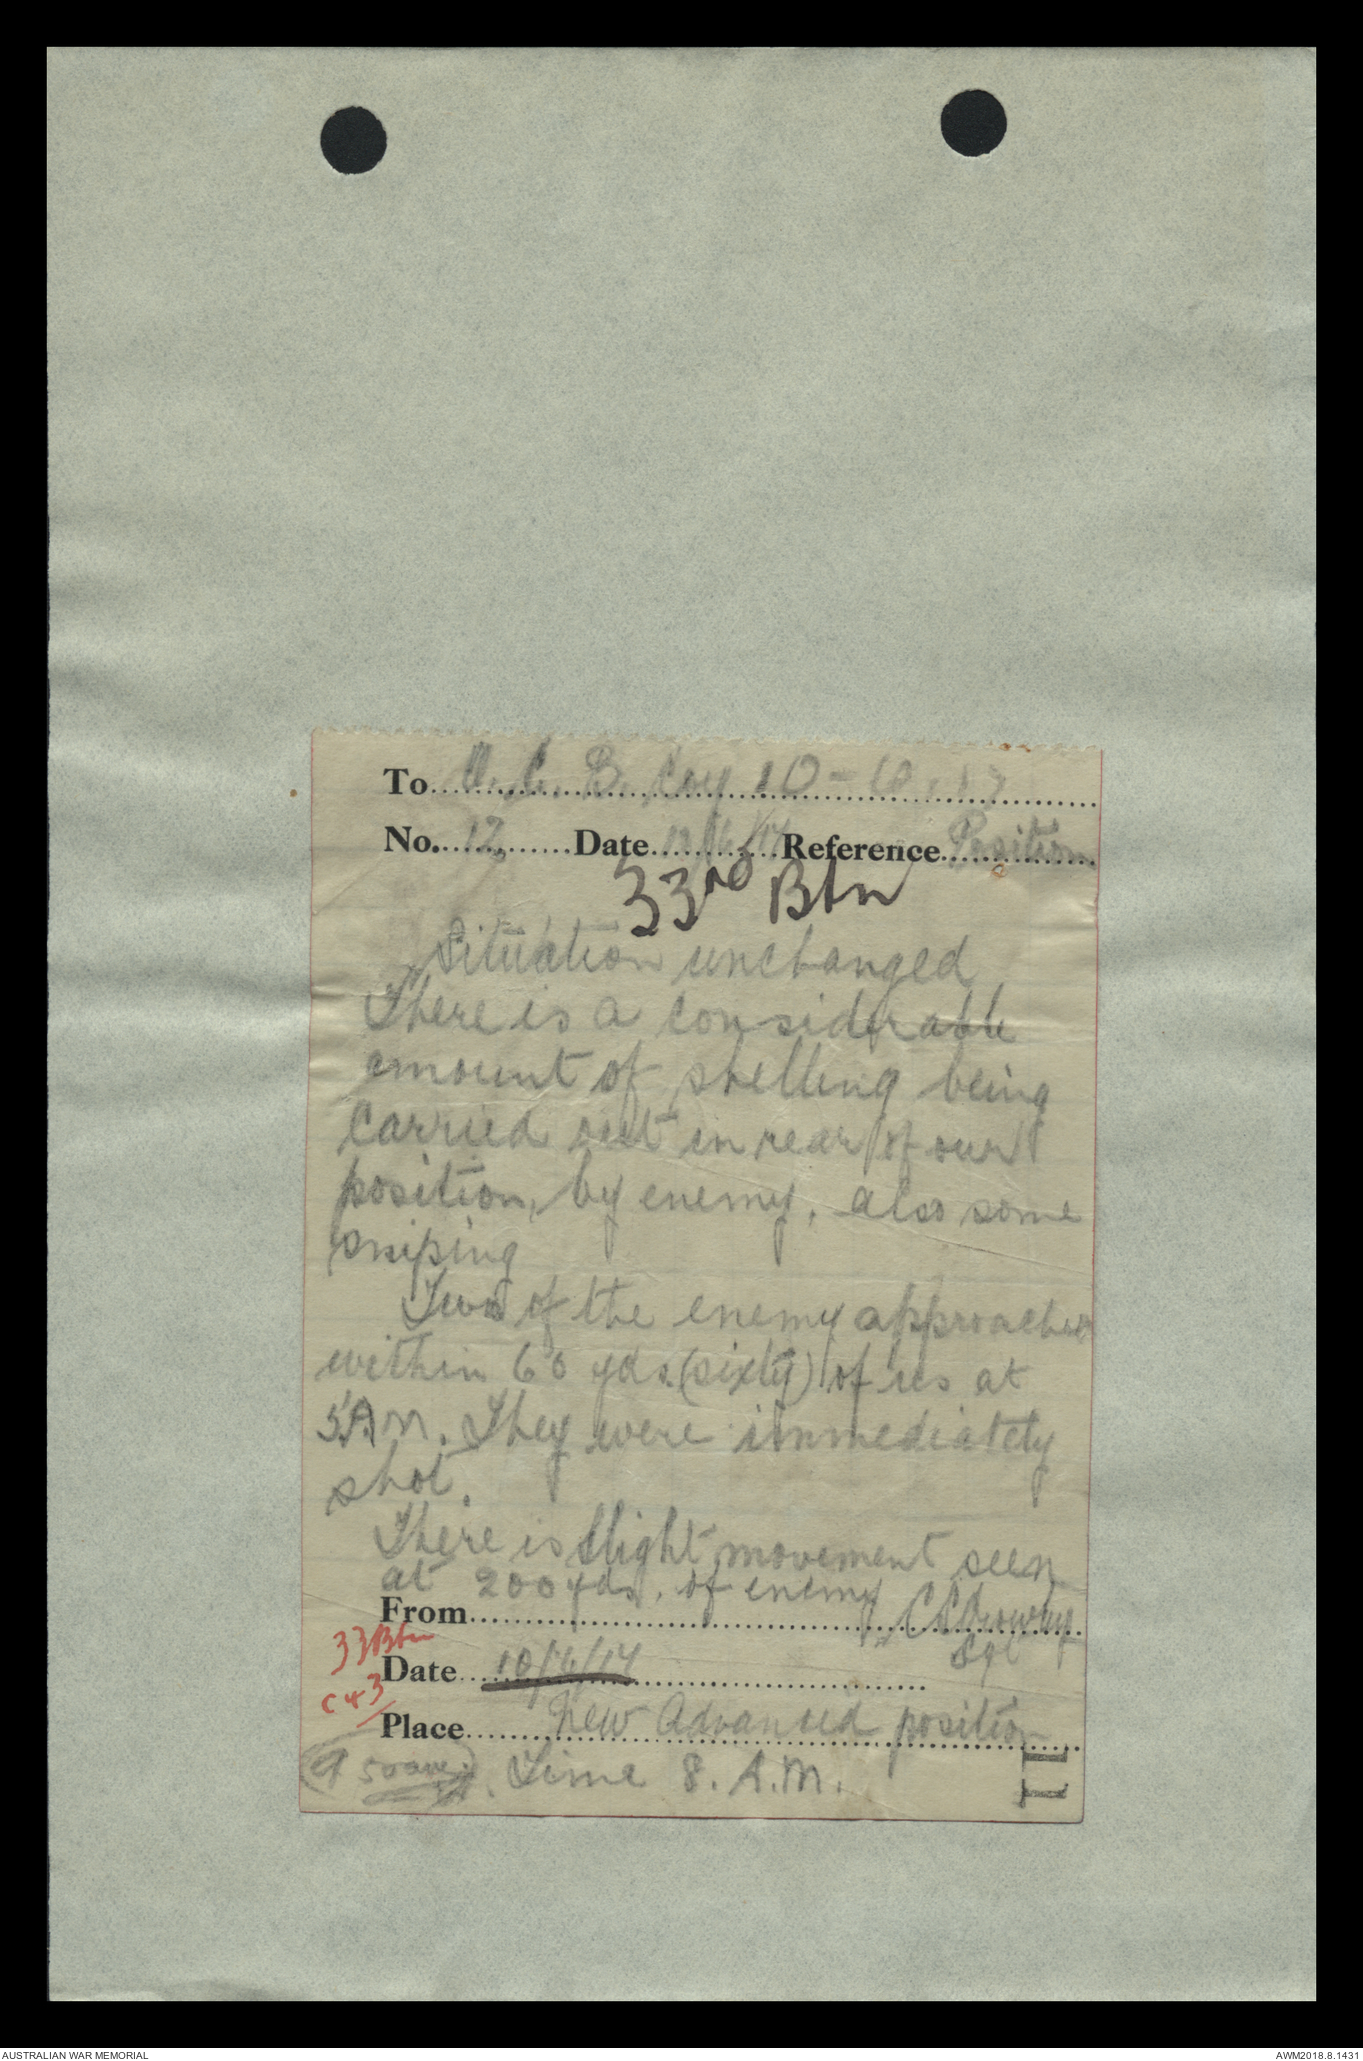 To O.C. B. Coy 10-6.17
No. 12 Date 12/6/17 Reference Position
33rd Btn
Situation unchanged
There is a considerable
amount of shelling being
carried out in rear of our
position, by enemy, also some
sniping
Two of the enemy approached
within 60 yds (sixty) of us at
5 A.M. They were immediately
shot.
There is slight movement seen
at 200 yds. of enemy
From
Sgt
33 Btn
Date 10/6/17
C43
Place New Advanced position
Time 8. A.M.
AUSTRALIAN WAR MEMORIAL
AWM2018.8.1431